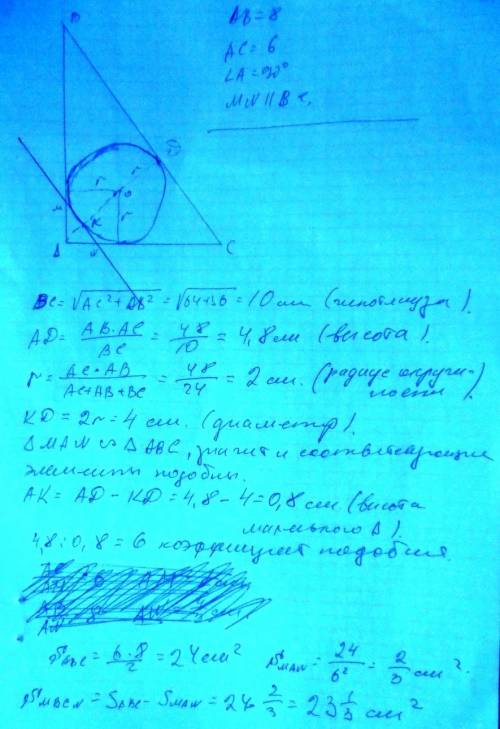 AB = 8
AC = 6
∠A = 90°
MN || BC
B
r
O
r
M
K
A
N
C
BC = √AC²+AB² = √64+36 = 10 см (гипотенуза).
AD = AB·AC/BC = 48/10 = 4,8 см (высота).
r = AC·AB/AC+AB+BC = 48/24 = 2 см. (радиус окружности).
KD = 2r = 4 см. (диаметр).
Δ MAN ∾ Δ ABC, значит и соответствующие
элементы подобны.
AK = AD − KD = 4,8 − 4 = 0,8 см (высота
маленького Δ).
4,8 : 0,8 = 6 коэффициент подобия.
S ABC = 6·8/2 = 24 см² S MAN = 24/6² = 2/3 см².
S MBCN = S ABC − S MAN = 24 - 2/3 = 23 1/3 см²